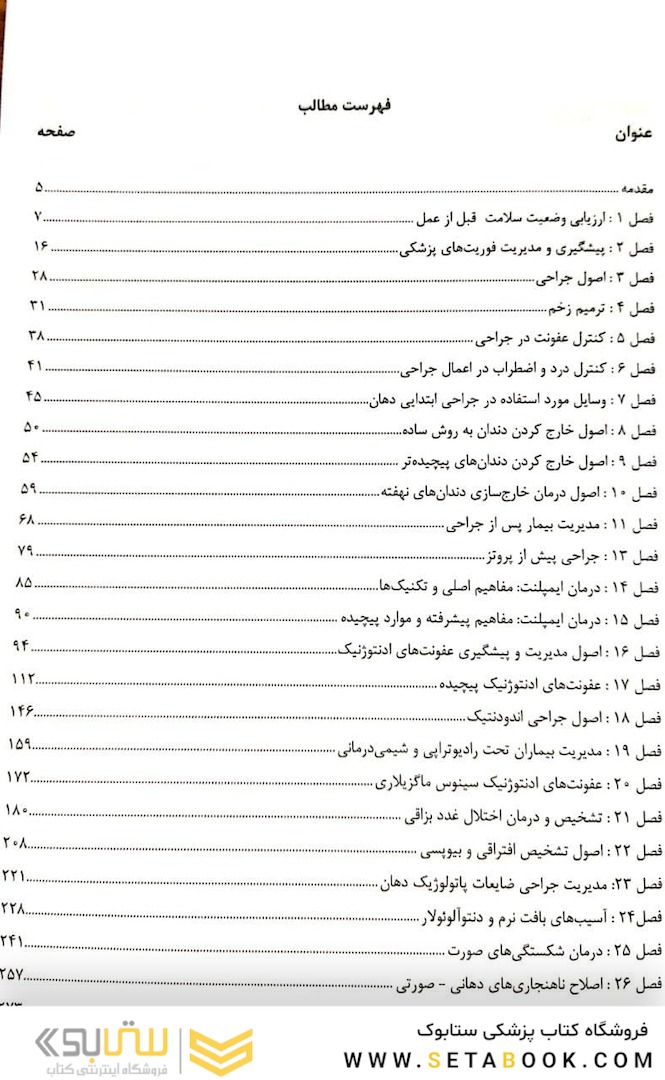 فهرست مطالب
عنوان صفحه
مقدمه ........ ۵
فصل ۱ : ارزیابی وضعیت سلامت قبل از عمل ........ ۷
فصل ۲ : پیشگیری و مدیریت فوریت‌های پزشکی ........ ۱۶
فصل ۳ : اصول جراحی ........ ۲۸
فصل ۴ : ترمیم زخم ........ ۳۱
فصل ۵ : کنترل عفونت در جراحی ........ ۳۸
فصل ۶ : کنترل درد و اضطراب در اعمال جراحی ........ ۴۱
فصل ۷ : وسایل مورد استفاده در جراحی ابتدایی دهان ........ ۴۵
فصل ۸ : اصول خارج کردن دندان به روش ساده ........ ۵۰
فصل ۹ : اصول خارج کردن دندان‌های پیچیده‌تر ........ ۵۴
فصل ۱۰ : اصول درمان خارج‌سازی دندان‌های نهفته ........ ۵۹
فصل ۱۱ : مدیریت بیمار پس از جراحی ........ ۶۸
فصل ۱۳ : جراحی پیش از پروتز ........ ۷۹
فصل ۱۴ : درمان ایمپلنت: مفاهیم اصلی و تکنیک‌ها ........ ۸۵
فصل ۱۵ : درمان ایمپلنت: مفاهیم پیشرفته و موارد پیچیده ........ ۹۰
فصل ۱۶ : اصول مدیریت و پیشگیری عفونت‌های ادنتوژنیک ........ ۹۴
فصل ۱۷ : عفونت‌های ادنتوژنیک پیچیده ........ ۱۱۲
فصل ۱۸ : اصول جراحی اندودنتیک ........ ۱۴۶
فصل ۱۹ : مدیریت بیماران تحت رادیوتراپی و شیمی‌درمانی ........ ۱۵۹
فصل ۲۰ : عفونت‌های ادنتوژنیک سینوس ماگزیلاری ........ ۱۷۲
فصل ۲۱ : تشخیص و درمان اختلال غدد بزاقی ........ ۱۸۰
فصل ۲۲ : اصول تشخیص افتراقی و بیوپسی ........ ۲۰۸
فصل ۲۳: مدیریت جراحی ضایعات پاتولوژیک دهان ........ ۲۲۱
فصل۲۴ : آسیب‌های بافت نرم و دنتوآلوئولار ........ ۲۲۸
فصل ۲۵ : درمان شکستگی‌های صورت ........ ۲۴۱
فصل ۲۶ : اصلاح ناهنجاری‌های دهانی - صورتی ........ ۲۵۷
فروشگاه کتاب پزشکی ستابوک
WWW.SETABOOK.COM
ستابوک
فروشگاه اینترنتی کتاب